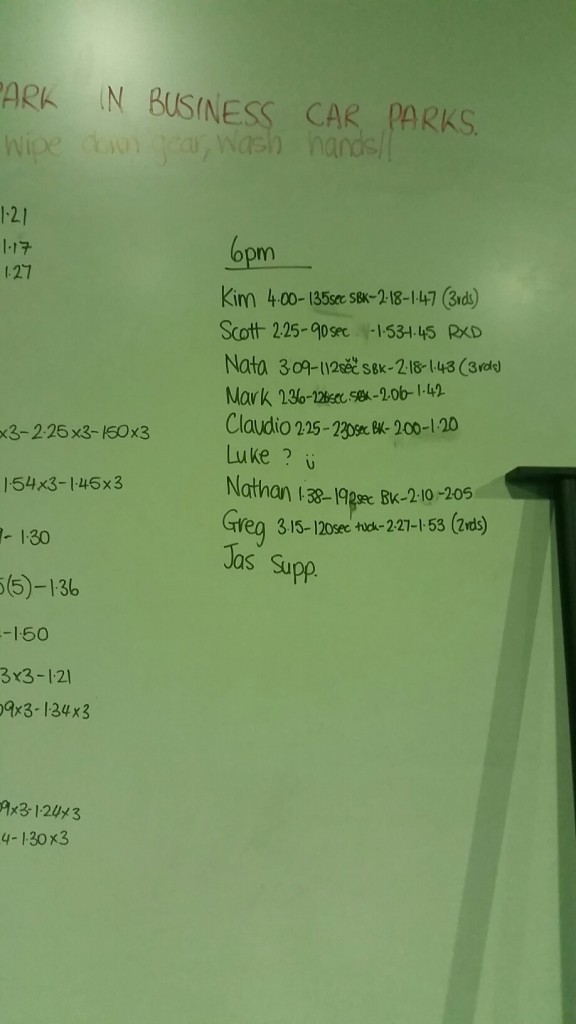 PARK IN BUSINESS CAR PARKS.
Wipe down gear, wash hands!!
1.21
1.17
1.27
x3-2.25x3-150x3
1.54x3-1.45x3
- 1.30
5(5)-1.36
-1.50
3x3-1.21
09x3-1.34x3
09x3-1.24x3
4-1.30x3
6pm
Kim 4.00-135sec SBK-2.18-1.47 (3rds)
Scott 2.25-90sec -1.53-1.45 RXD
Nata 3.09-112sec SBK-2.18-1.43 (3rds)
Mark 2.36- SBK-2.06-1.42
Claudio 2.25-230sec BK-2.00-1.20
Luke ? ü
Nathan 1.38-192sec BK-2.10-2.05
Greg 3.15-120sec tuck-2.27-1.53 (2rds)
Jas Supp.